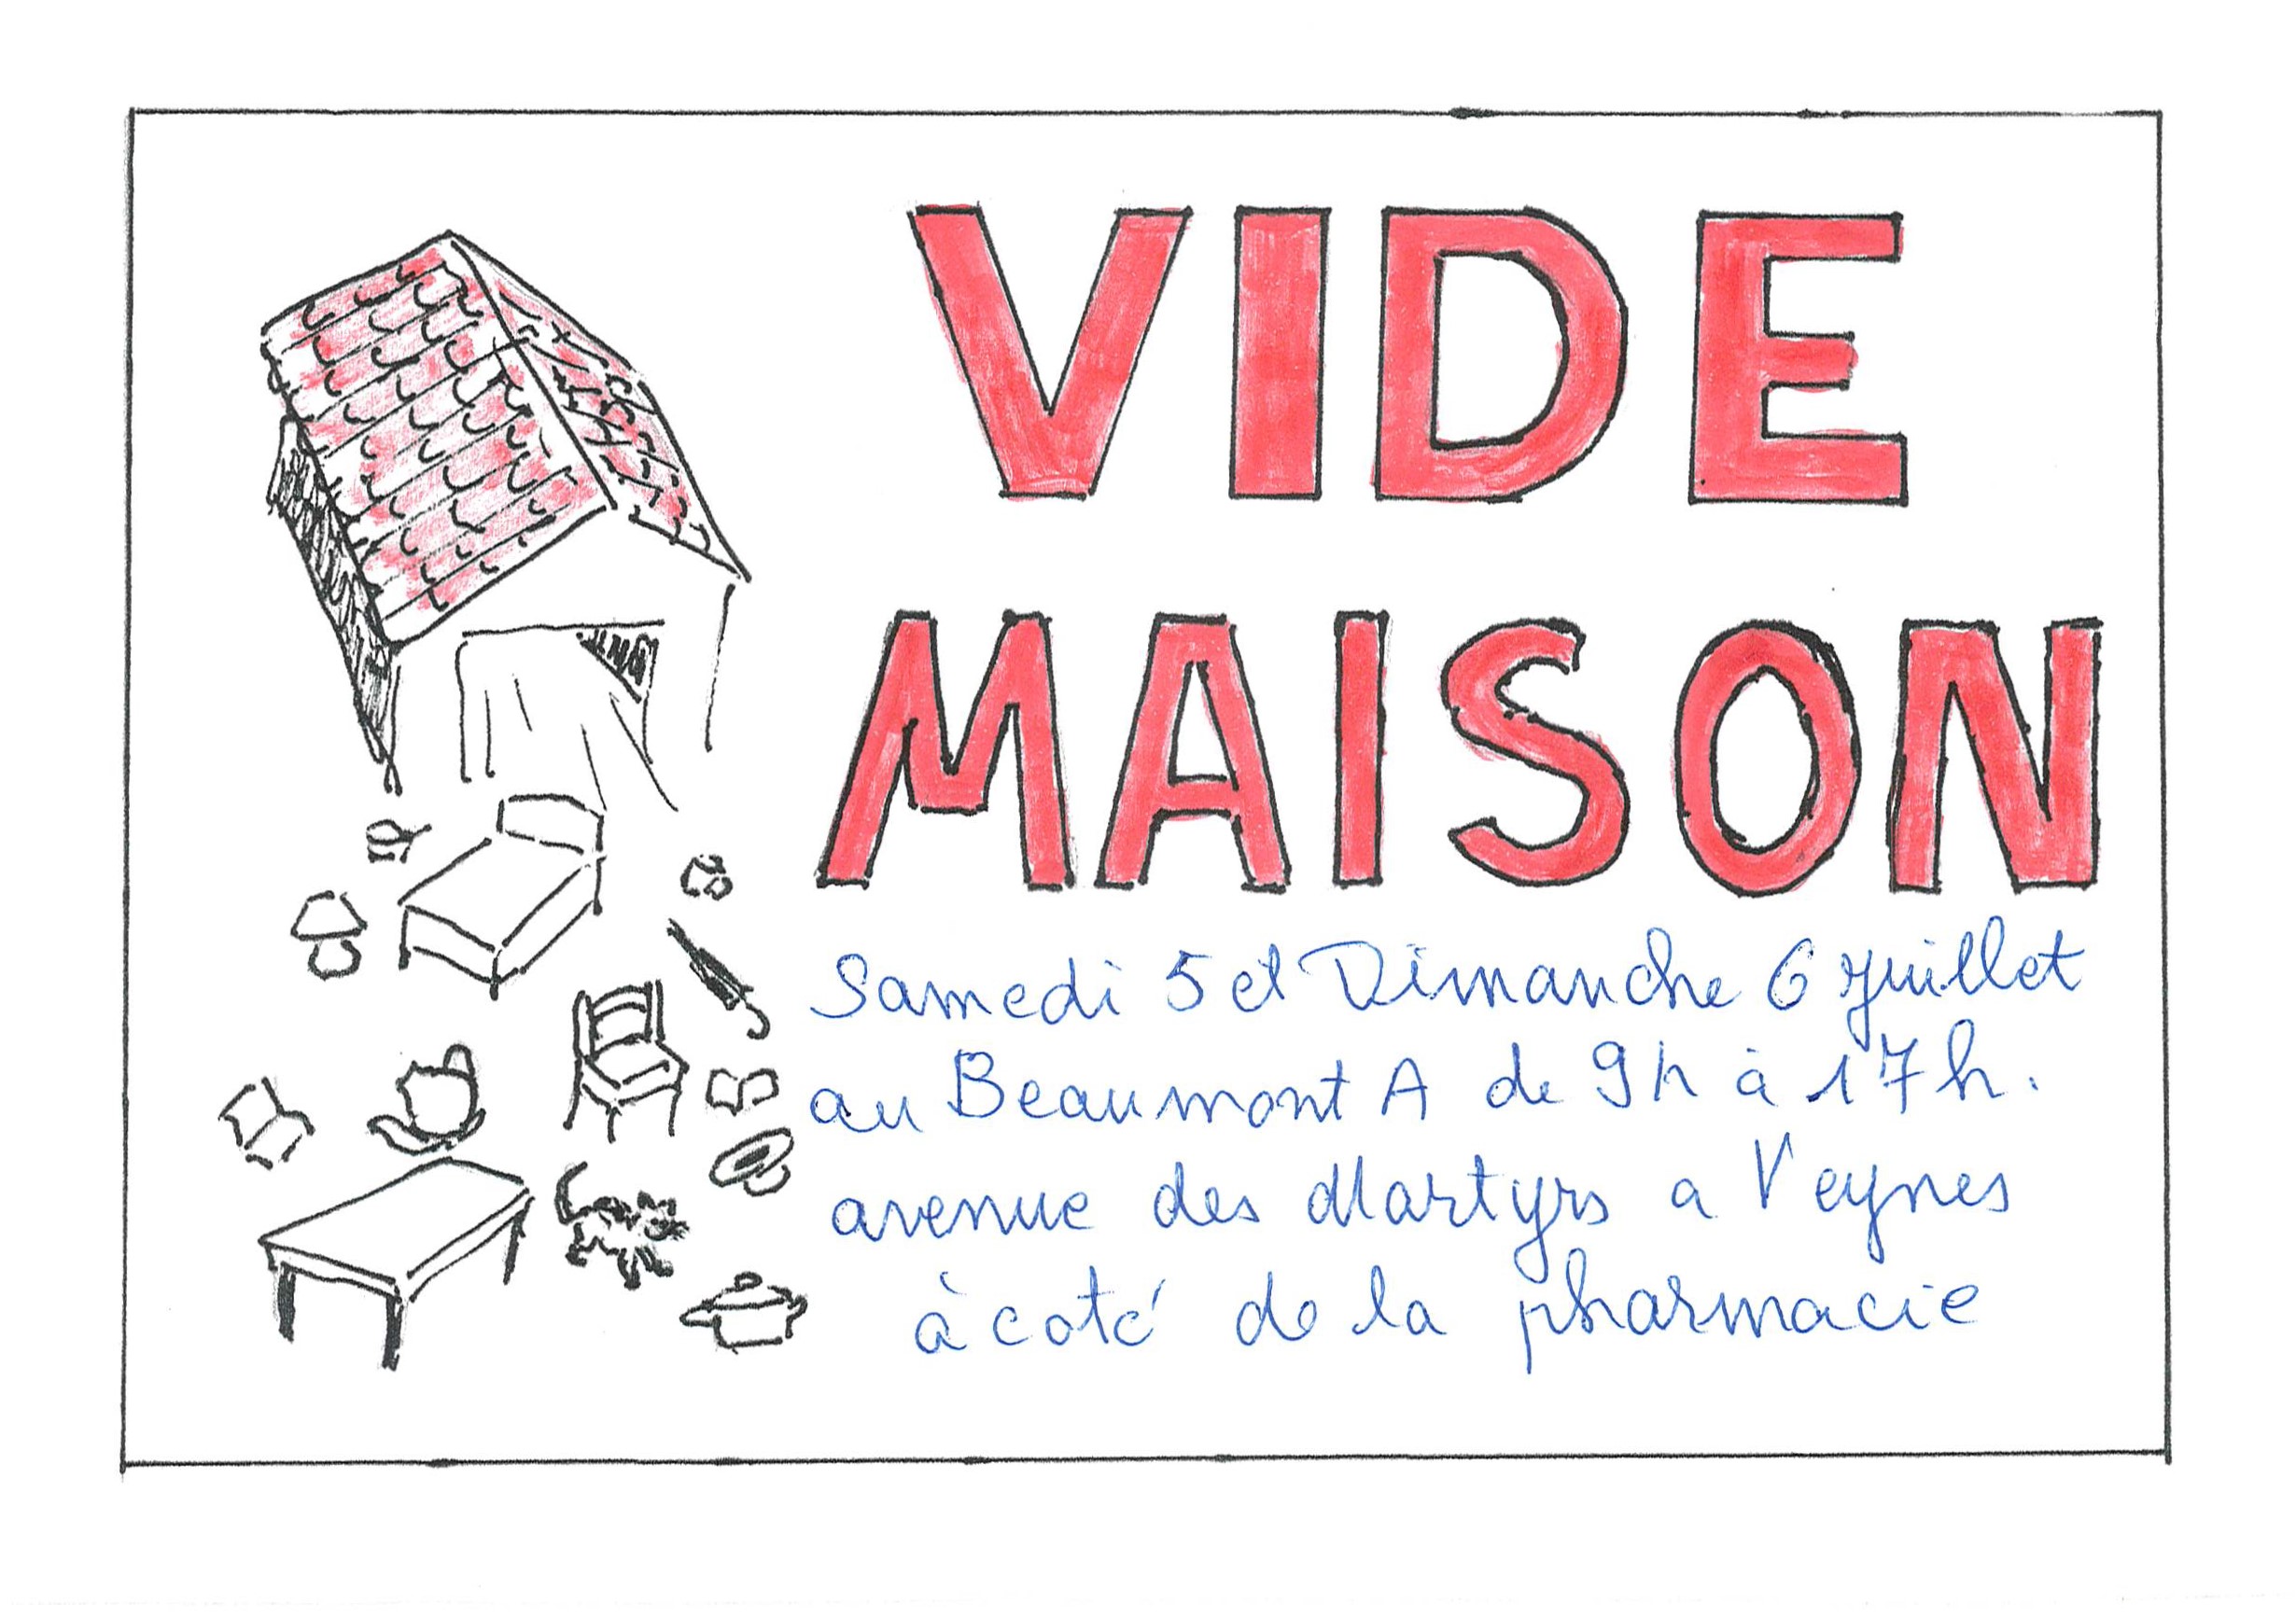 VIDE
MAISON
Samedi 5 et Dimanche 6 juillet
au Beaumont A de 9h à 17h.
avenue des Martyrs a Veynes
à coté de la pharmacie